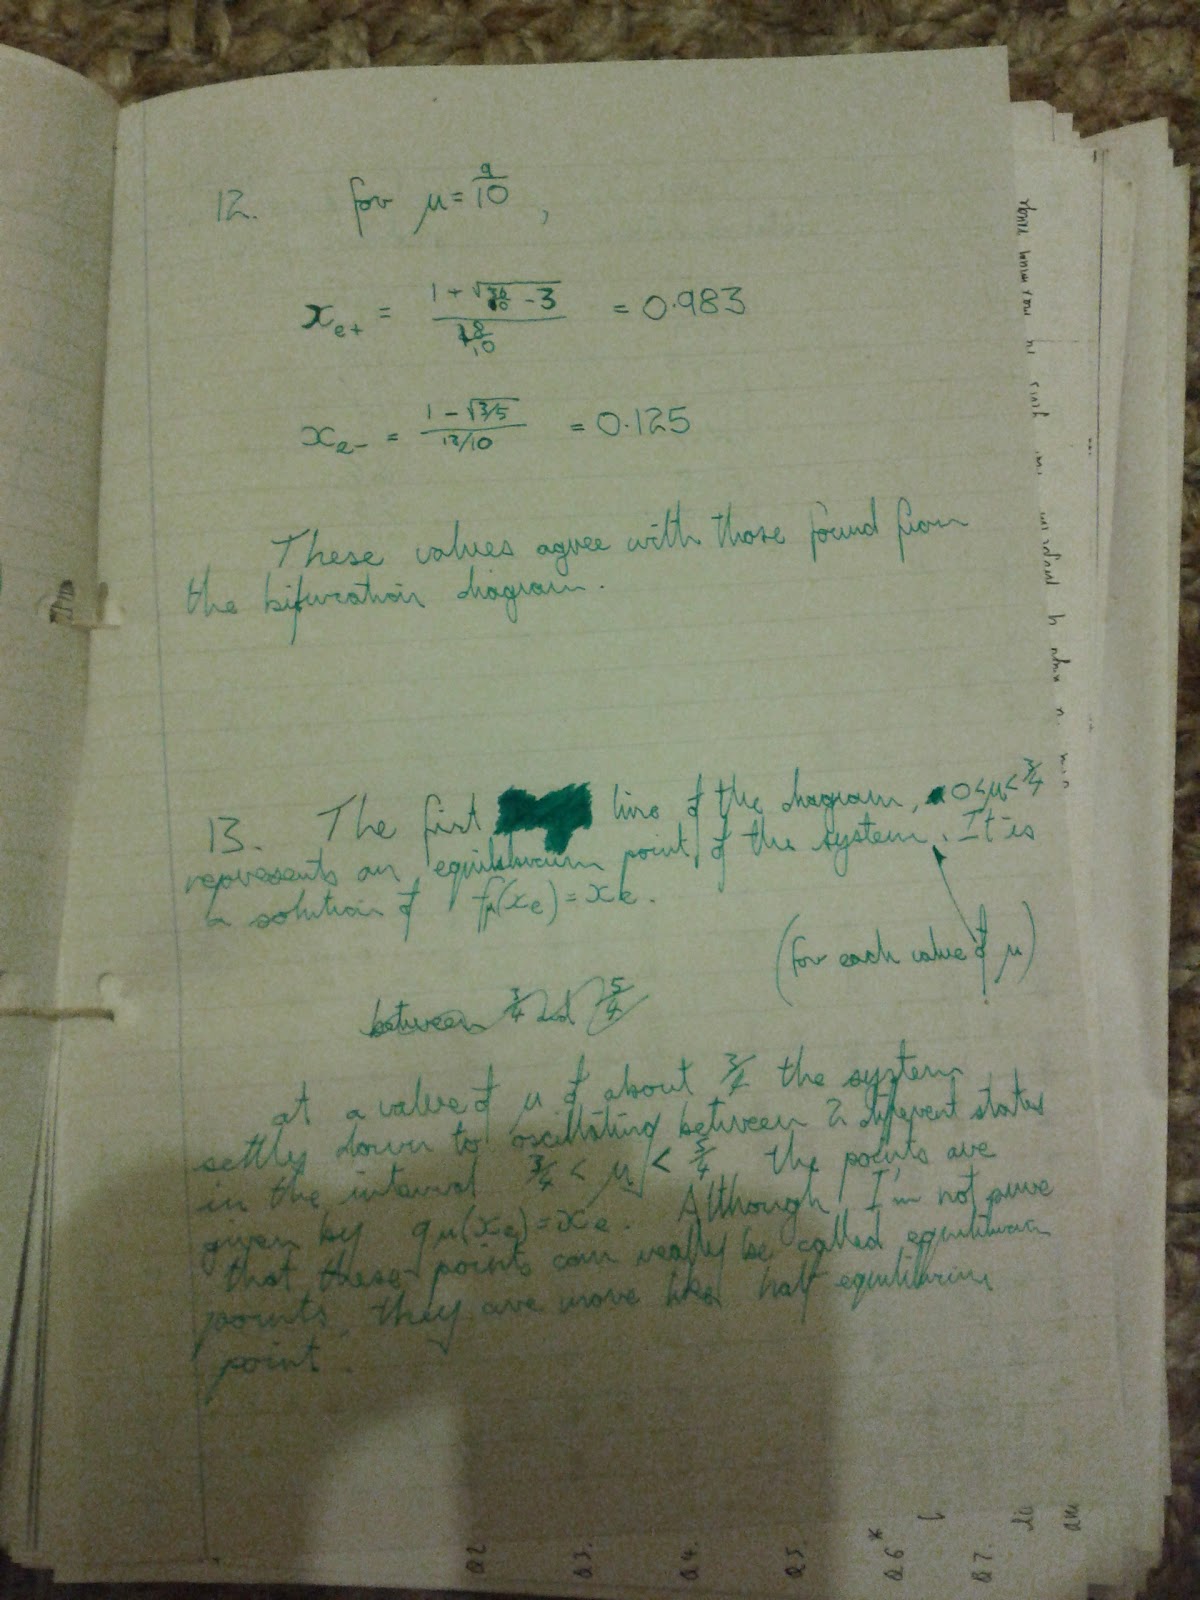 12. for μ = 9/10 ,
x_e+ = (1 + √(36/10 - 3)) / (18/10) = 0.983
x_e- = (1 - √(3/5)) / (18/10) = 0.125
These values agree with those found from
the bifurcation diagram.
13. The first line of the diagram, 0<μ<3/4
represents an equilibrium point of the system. It is
a solution of fμ(x_e) = x_e.
(for each value of μ)
between 3/4 and 5/4
at a value of μ of about 3/4 the system
settly down to oscillating between 2 different states
in the interval 3/4 < μ < 5/4 the points are
given by gμ(x_e) = x_e. Although I'm not pure
that these points can really be called equilibrium
points, they are more like half equilibrium
point.
Q2
Q3.
Q4.
Q5.
Q6*
Q7.
am